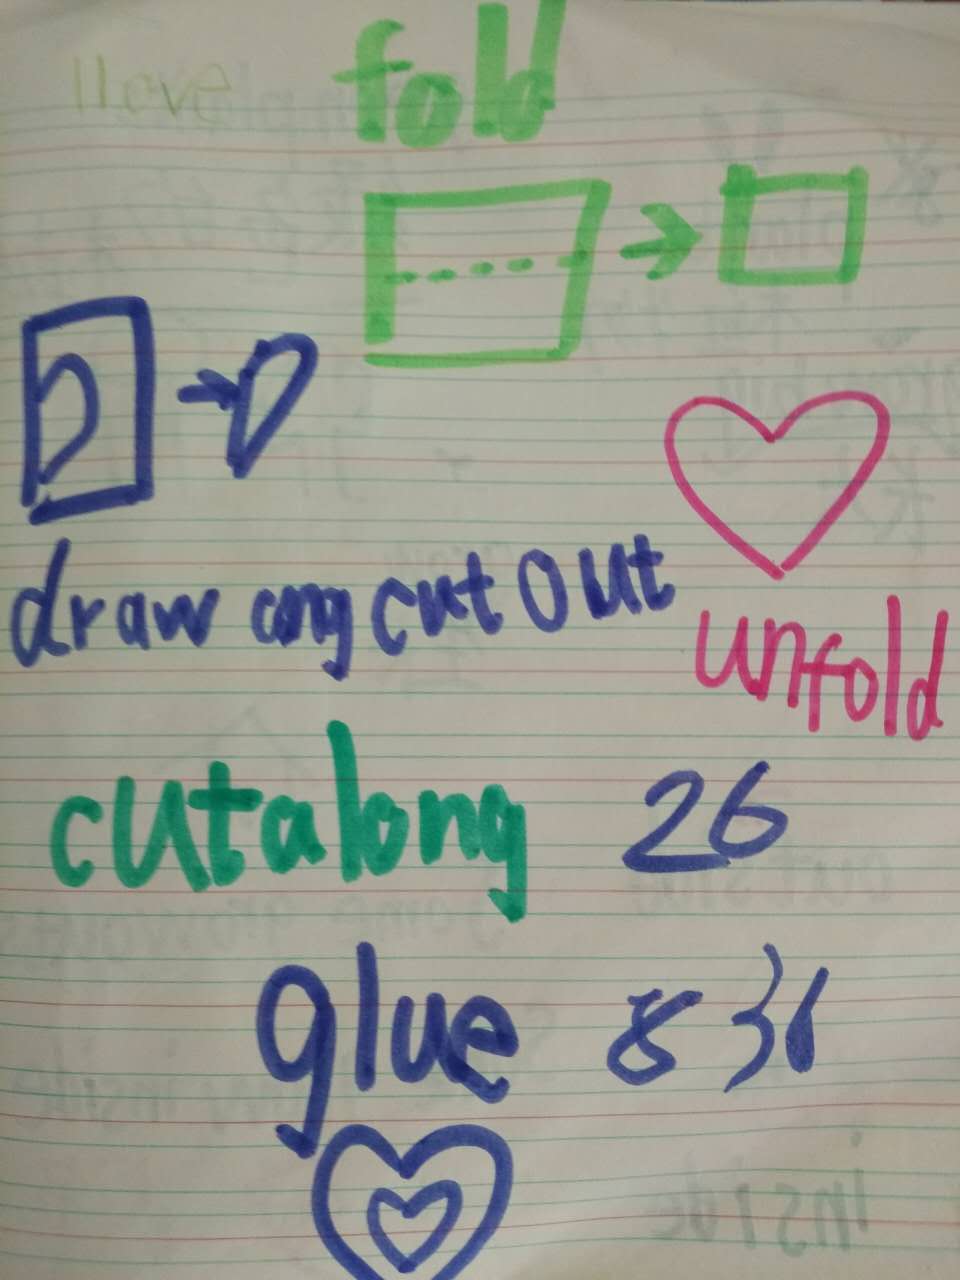 I love
fold
draw ang cut out
unfold
cut along 26
glue 8 31